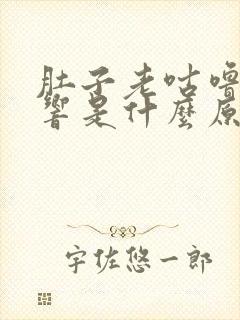 肚子老咕噜
響是什麼原
宇佐悠一郎